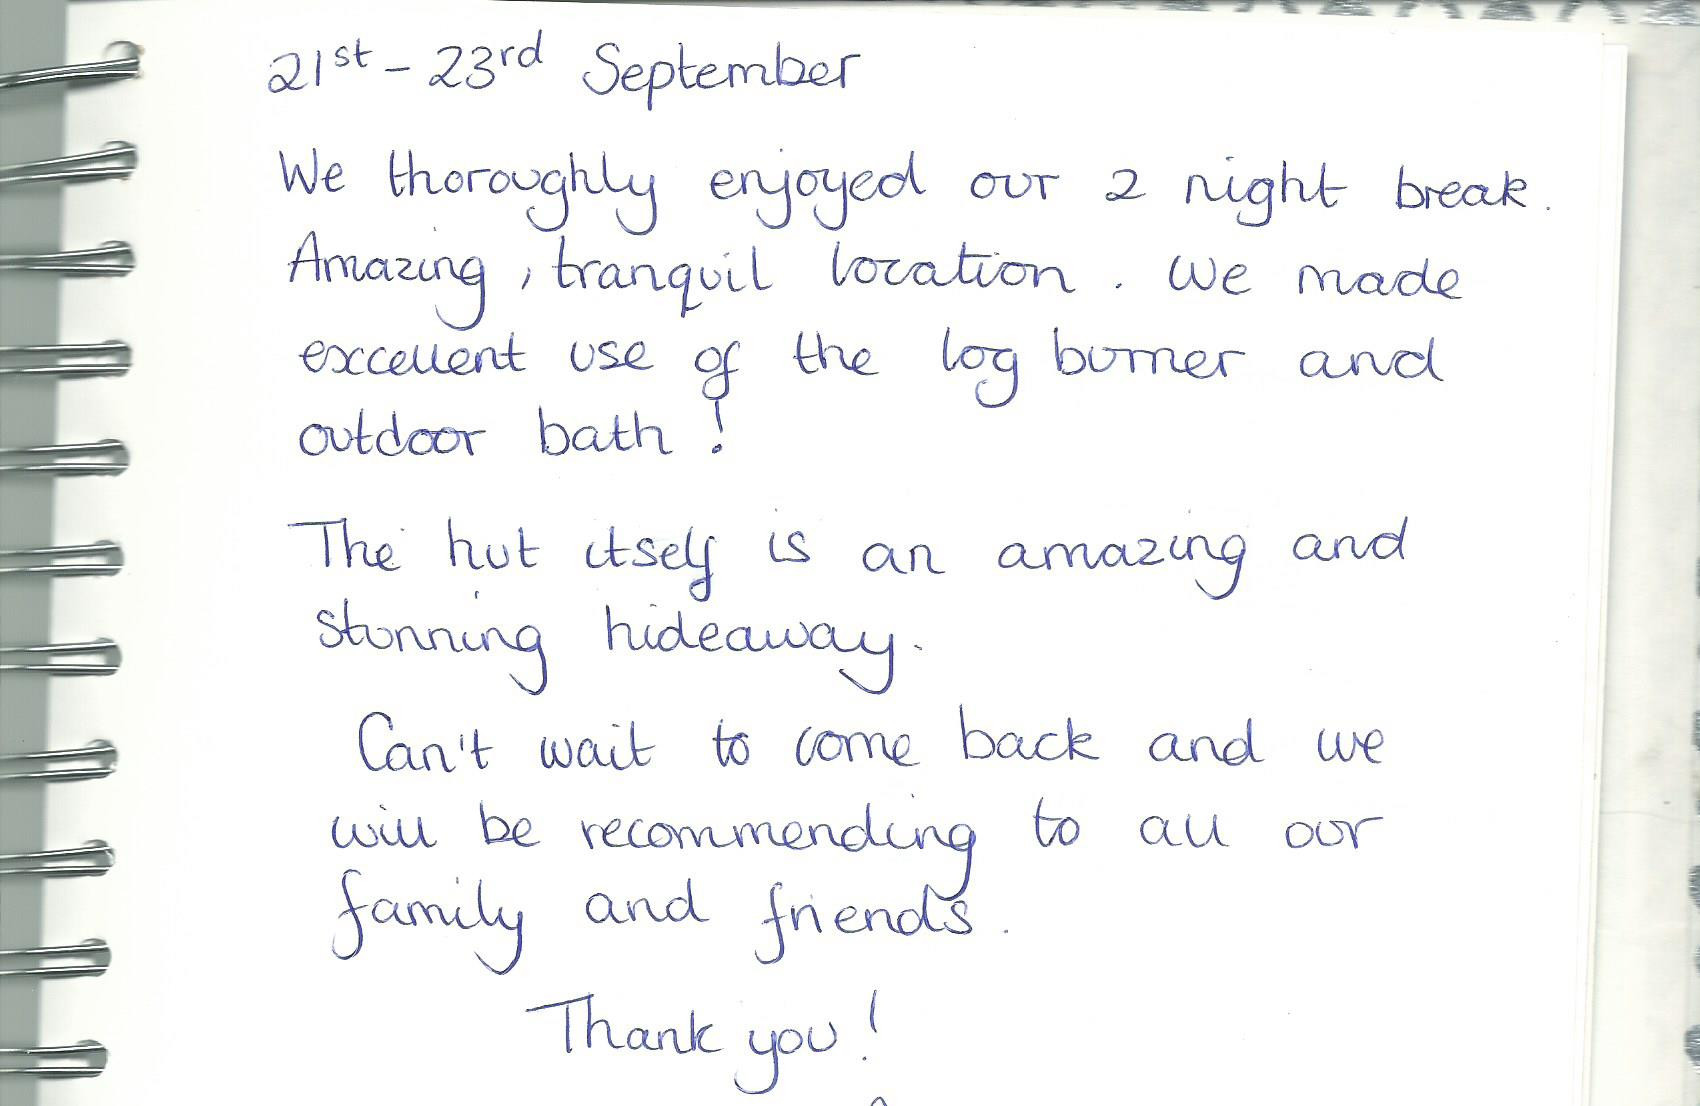 21st - 23rd September
We thoroughly enjoyed our 2 night break.
Amazing, tranquil location. We made
excellent use of the log burner and
outdoor bath!
The hut itself is an amazing and
stunning hideaway.
Can't wait to come back and we
will be recommending to all our
family and friends.
Thank you!